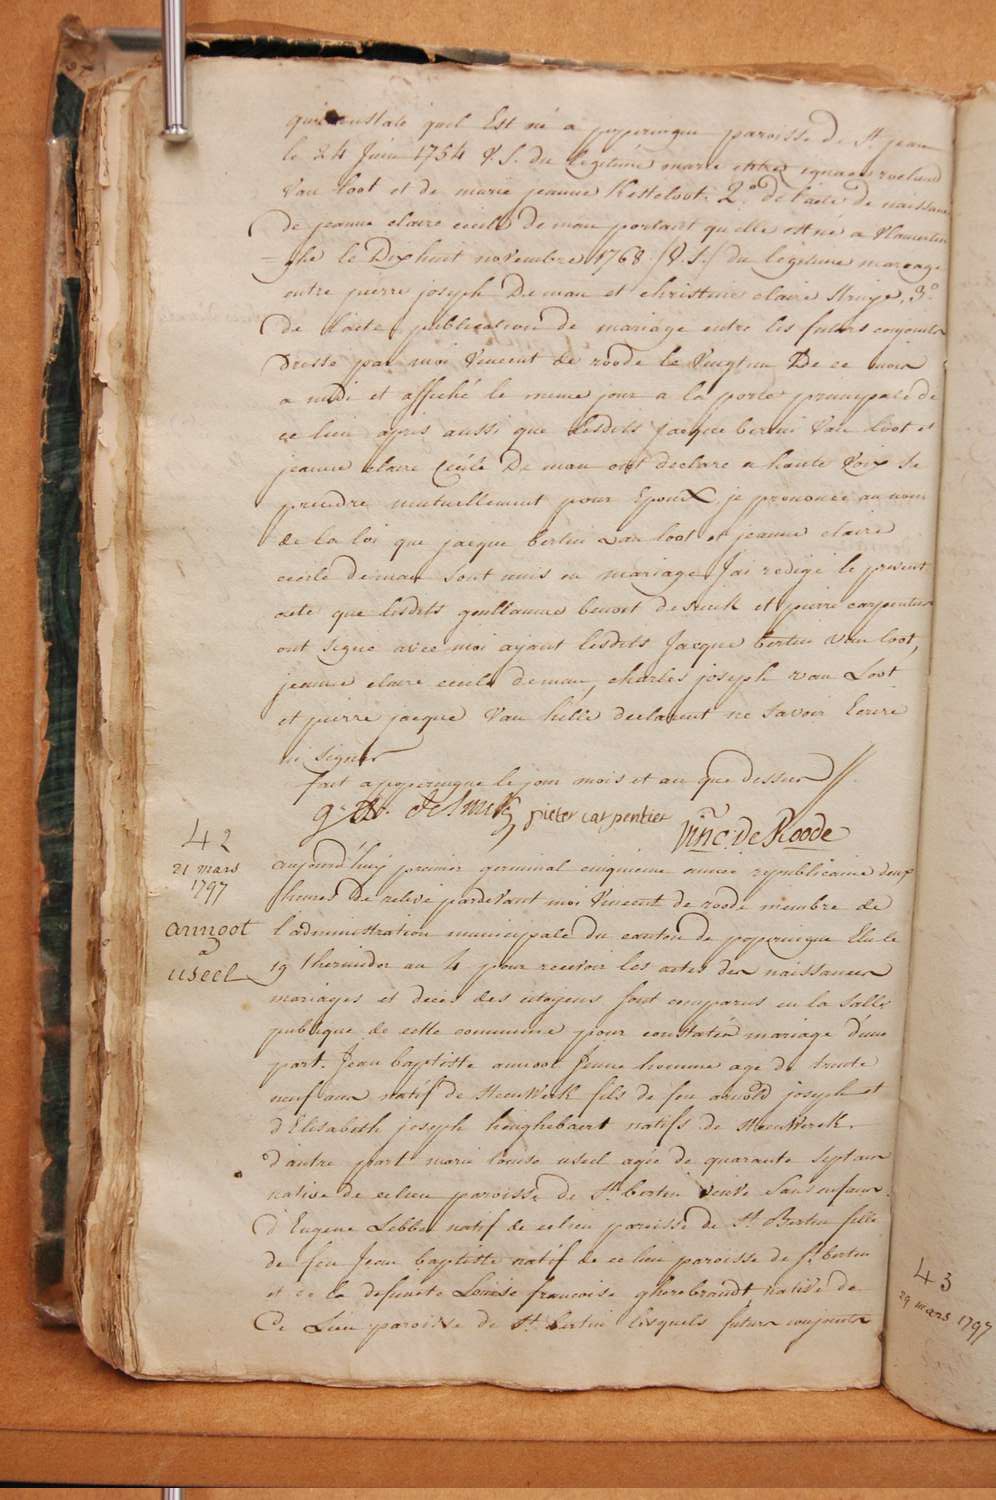 qui constate quil Est né a poperingue paroisse de St jean
le 24 Juin 1754 V.S. du legitime marie entre ignace roeland
Van Loot et de marie jeanne Kesteloot. 2.° de l'acte de naissance
De jeanne claire cecile De man portant qu'elle est né a Vlamertin
-ghe le Dix huit novembre 1768 (V.S.) du legitime mareage
entre pierre joseph De man et christine claire Struye, 3.°
de l'acte publication de mariage entre les futurs conjoints
Dresse par moi Vincent de roode le Vingt un De ce mois
a midi et affiché le meme jour a la porte principale de
ce lieu apris aussi que lesdits Jacque bertin Van Loot et
jeanne claire Cecile De man ont declare a haute Voix Se
prendre mutuellement pour Epoux, je prononce au nom
de la loi que jacque bertin van loot et jeanne claire
cecile deman sont unis en mariage. J'ai redigé le present
acte que lesdits guillaume benoit desmick et pierre carpentier
ont signe avec moi ayant lesdits Jacque bertin van loot,
jeanne claire cecile deman, charles joseph van Loot
et pierre jacque Van hille declarent ne savoir Ecrire
ni signer
fait a poperingue le jour mois et an que dessus
g. de Smick pieter carpentier
Vinc. de Roode
42
21 mars
1797
annoot
a
useel
aujourd'huy premier germinal cinquieme annee republicaine deux
heures De relevé pardevant moi Vincent de roode membre de
l'administration municipale du canton de poperingue Elu le
19 thermidor an 4 pour recevoir les actes des naissances
mariages et deces des citoyens sont comparus en la salle
publique de cette commune pour constater mariage d'une
part. Jean baptiste annoot Jeune homme age de trente
neuf ans natif de SteenWerk fils de feu arnold joseph et
d'Elisabeth joseph hinghebaert natifs de SteenWerck.
d'autre part marie louise useel agée de quarante Sept ans
native de ce lieu paroisse de St bertin veuve Sans enfans
d'Eugene Lebbe natif de ce lieu paroisse de St Bertin fille
de feu Jean baptiste natif de ce lieu paroisse de St bertin
et de la defuncte Louise francoise gherebrandt native de
Ce Lieu paroisse de St bertin lesquels futurs conjoints
43
29 mars 1797